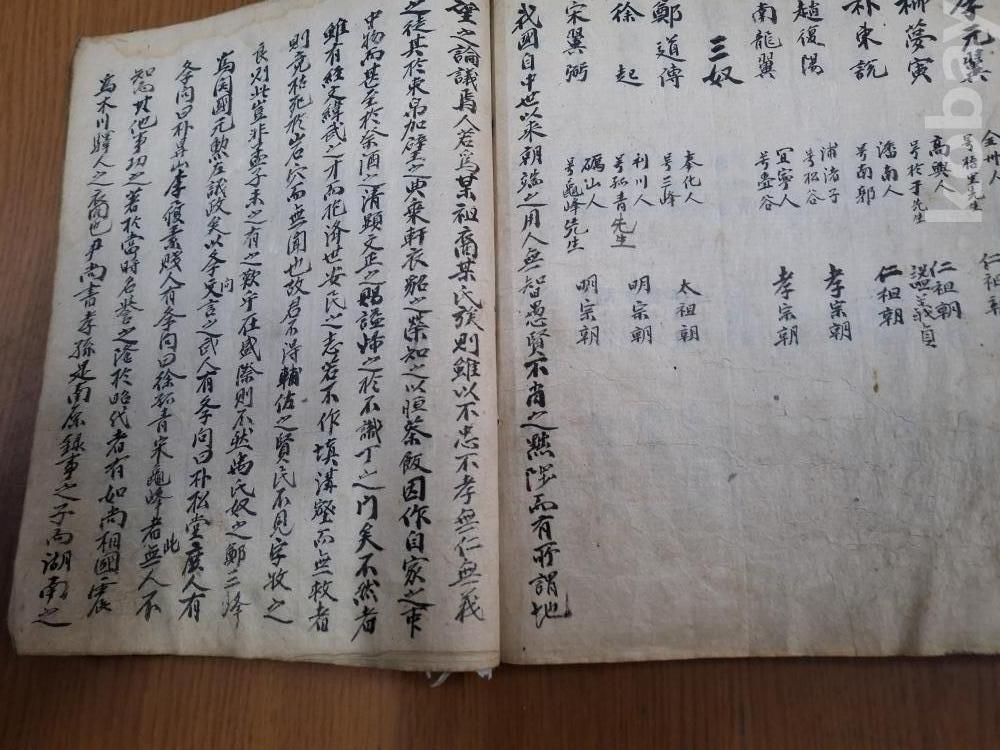 李元翼 全州人 號梧里先生 仁祖朝
柳夢寅 高興人 号於于先生 仁祖朝 謚義貞
朴東說 潘南人 号南郭 仁祖朝
趙復陽 浦渚子 号松谷 孝宗朝
南龍翼 宜寧人 号壺谷 孝宗朝
三奴
鄭道傳 奉化人 号三峰 太祖朝
徐起 利川人 号孤青先生 明宗朝
宋翼弼 礪山人 号龜峰先生 明宗朝
我國自中世以來朝端之用人無智愚賢不肖之㸃陟而有所謂地
望之論議焉人若爲某祖裔某氏族則雖以不忠不孝無仁無義
之徒其於束帛加璧之典乘軒衣貂之榮知之以恒茶飯因作自家之
中物而甚至於祭酒之清顯文正之賜謚恃之於不識丁之門矣不然者
雖有經文緯武之才而抱濟世安民之志若不作塡溝壑而無救者
則竟枯死於岩穴而無聞也故君不得輔佐之賢民不見字牧之
良則此豈非孟子未之有之歎乎在盛際則不然爲氏奴之鄭三峰
爲國元勳左議政矣以向之武人有李向曰朴松堂廣人有
李向曰朴 山李復素賤人有李向曰徐孤青宋龜峰者無人不
知此他事功之著於當時名譽之 於昭代者有如尚相國震
爲木川驛人之裔也尹尚書孝孫是南原錄事之子而湖南之
kobay